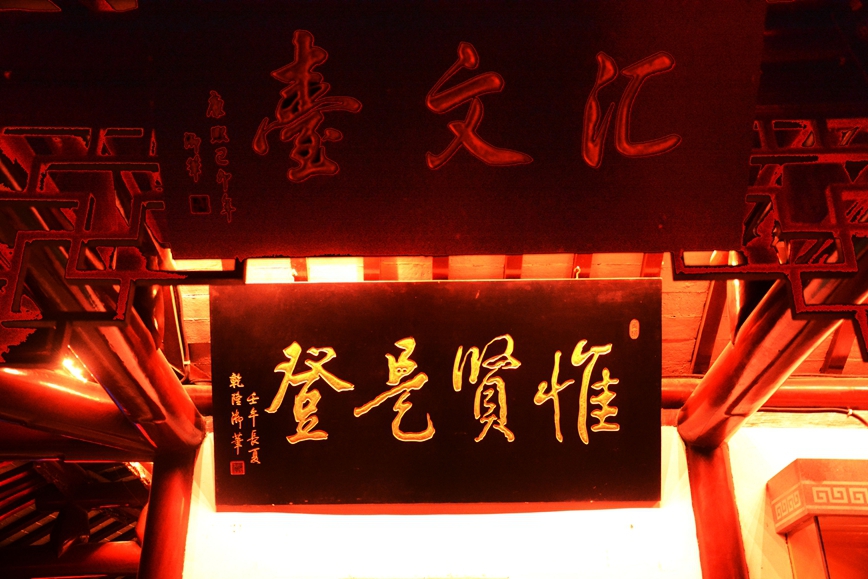 汇文臺
康熙己卯年
御筆
惟賢是登
壬午長夏
乾隆御筆